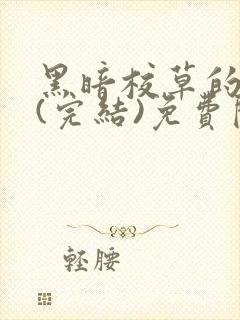 黑暗校草的
(完結)免費
輕腰